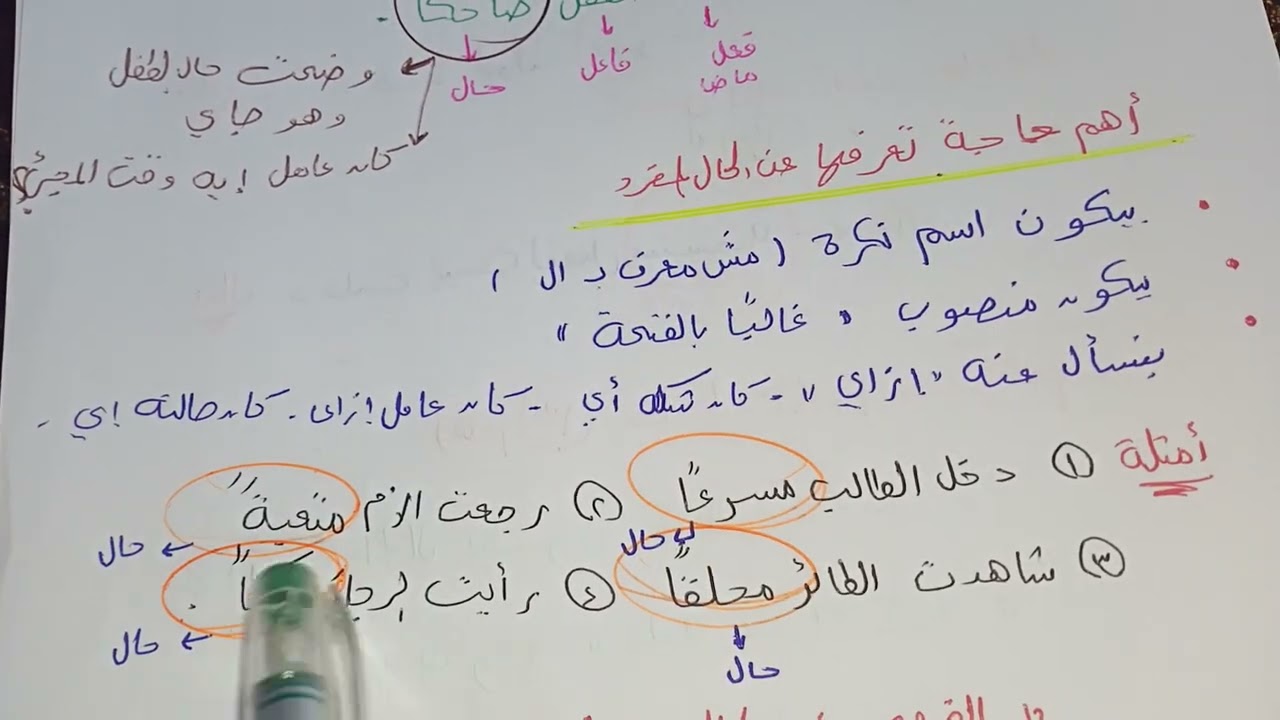 ضاحكًا .
فعل ماض
فاعل
حال
وضحت حال الطفل
وهو جاي
كان عامل إيه وقت المجيئ؟
أهم حاجة تعرفها عن الحال المفرد
• بيكون اسم نكرة (مش معرف بـ ال)
• يكون منصوب " غالبًا بالفتحة "
• بنسأل عنه "إزاي" - كان شكله أي - كان عامل إزاى - كان حالته إي -
أمثلة ① دخل الطالب مسرعًا ② رجعت الأم متعبةً
حال
حال
③ شاهدت الطائر محلقًا ④ رأيت الرجل
حال
حال